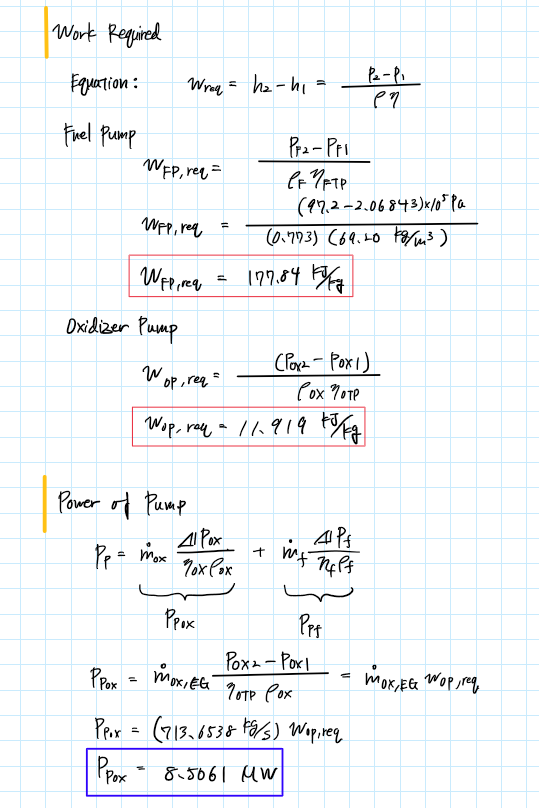 Work Required
Equation: w_req = h₂ - h₁ = (P₂ - P₁) / (ρη)
Fuel Pump
w_FP,req = (P_F2 - P_F1) / (ρ_F η_FTP)
w_FP,req = (97.2 - 2.06843)×10⁵ Pa / (0.773) (69.20 kg/m³)
w_FP,req = 177.84 kJ/kg
Oxidizer Pump
w_OP,req = (P_OX2 - P_OX1) / (ρ_OX η_OTP)
w_OP,req = 11.919 kJ/kg
Power of Pump
P_P = ṁ_ox (ΔP_ox) / (η_ox ρ_ox) + ṁ_f (ΔP_f) / (η_f ρ_f)
P_Pox P_Pf
P_Pox = ṁ_OX,EG (P_OX2 - P_OX1) / (η_OTP ρ_OX) = ṁ_OX,EG w_OP,req
P_Pox = (713.6538 kg/s) w_OP,req
P_Pox = 8.5061 MW